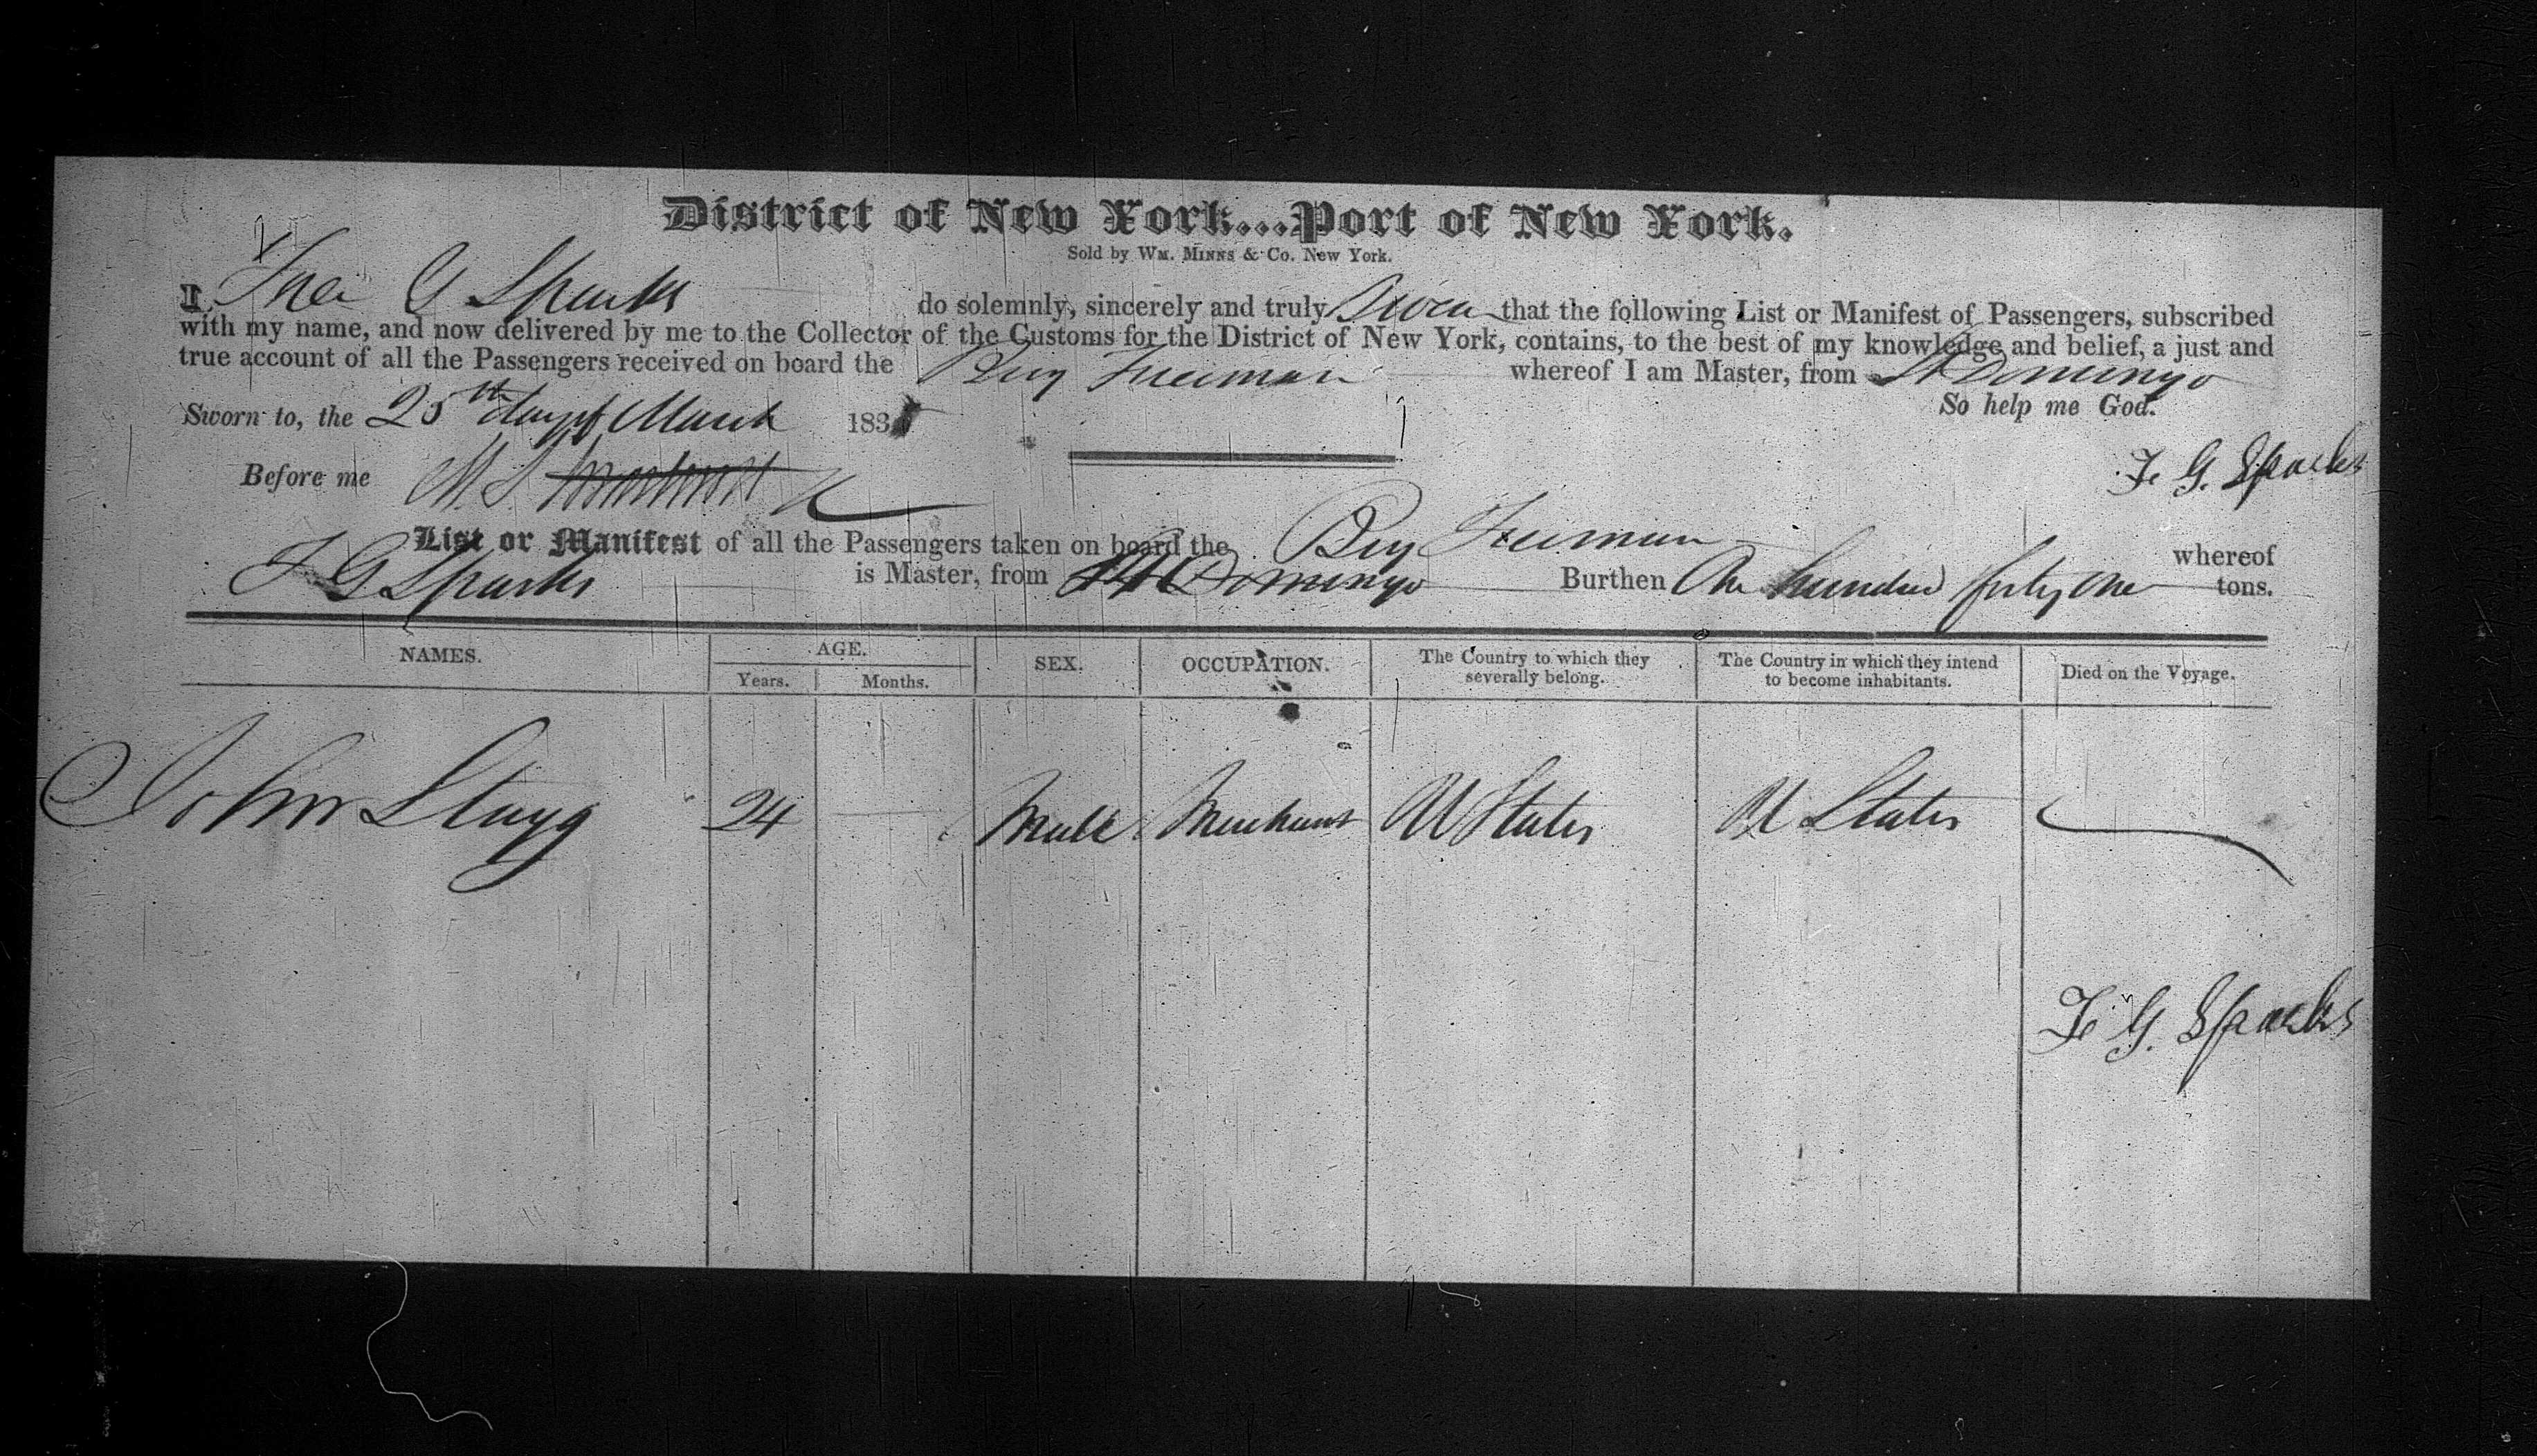 District of New York...Port of New York.
Sold by WM. MINNS & Co. New York.
I, G Sparks do solemnly, sincerely and truly that the following List or Manifest of Passengers, subscribed
with my name, and now delivered by me to the Collector of the Customs for the District of New York, contains, to the best of my knowledge and belief, a just and
true account of all the Passengers received on board the Freeman whereof I am Master, from St Domingo
Sworn to, the 25th day of March 183
So help me God.
Before me
G. Sparks
List or Manifest of all the Passengers taken on board the Freeman whereof
G Sparks is Master, from St Domingo Burthen One hundred forty one tons.
NAMES. AGE. SEX. OCCUPATION. The Country to which they severally belong. The Country in which they intend to become inhabitants. Died on the Voyage.
Years. Months.
John Stagg 24 Male Merchant U States U States
G. Sparks